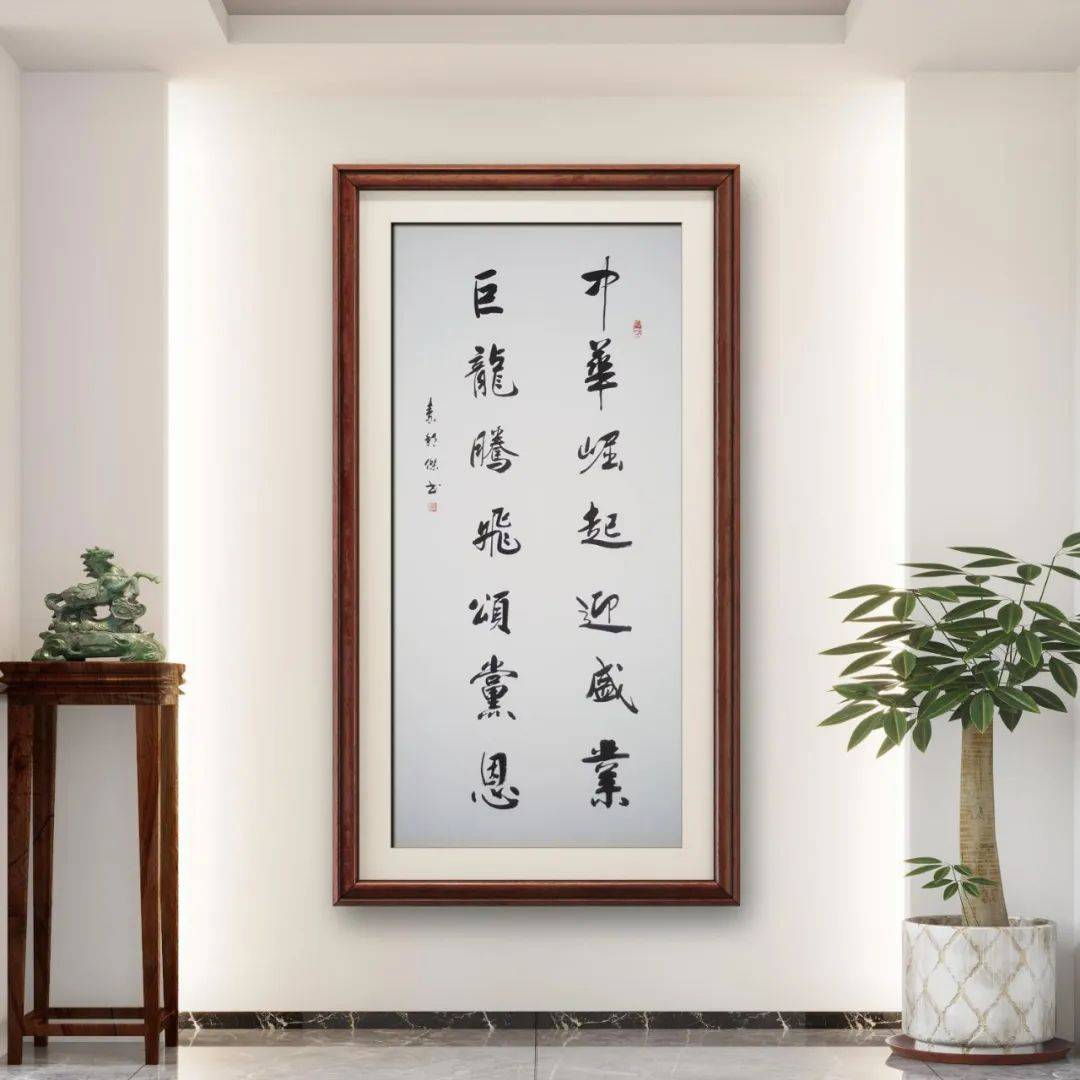 中華崛起迎盛業
巨龍騰飛頌黨恩
傑书